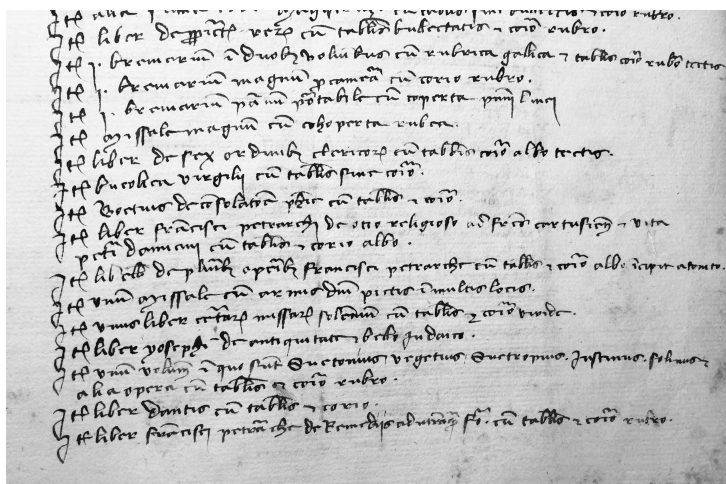 Itē liber de cū tabłis et corio rubro.
Itē j. breviariū ī duobꝫ voluībus cū rubrica galica et tabłis corio rubro tectis
Itē j. breviariū magnū cū corio rubro.
Itē j. breviariū parvū portabile cū coperta panni linei
Itē missale magnū cū cohoperta rubea.
Itē liber de sex ordinibꝫ clericorꝫ cū tabłis corio albo tectis.
Itē bucolica virgilij cū tabłis sine corio.
Itē Boetius de cōsolatōe phīe cū tabłis et corio.
Itē liber frācisci petrarche de otio religioso ad frēs cartusienses et vita
petri damiani cū tabłis et corio albo.
Itē de pluribꝫ operibꝫ francisci petrarche cū tabłis et corio albo īcipit
Itē unū missale cū armis dnī pictis ī multis locis.
Itē unus liber certarꝫ missarꝫ solemniū cū tabłis et corio viride.
Itē liber yosephi de antiquitate et bello Iudaico.
Itē unū volumē ī quo sūt Suetonius vegetius Eutropius. Iustinus. solinus et
alia opera cū tabłis et corio rubro.
Itē liber dantis cū tabłis et corio.
Itē liber frācisci petrarche de Remedijs cū tabłis et corio rubro.